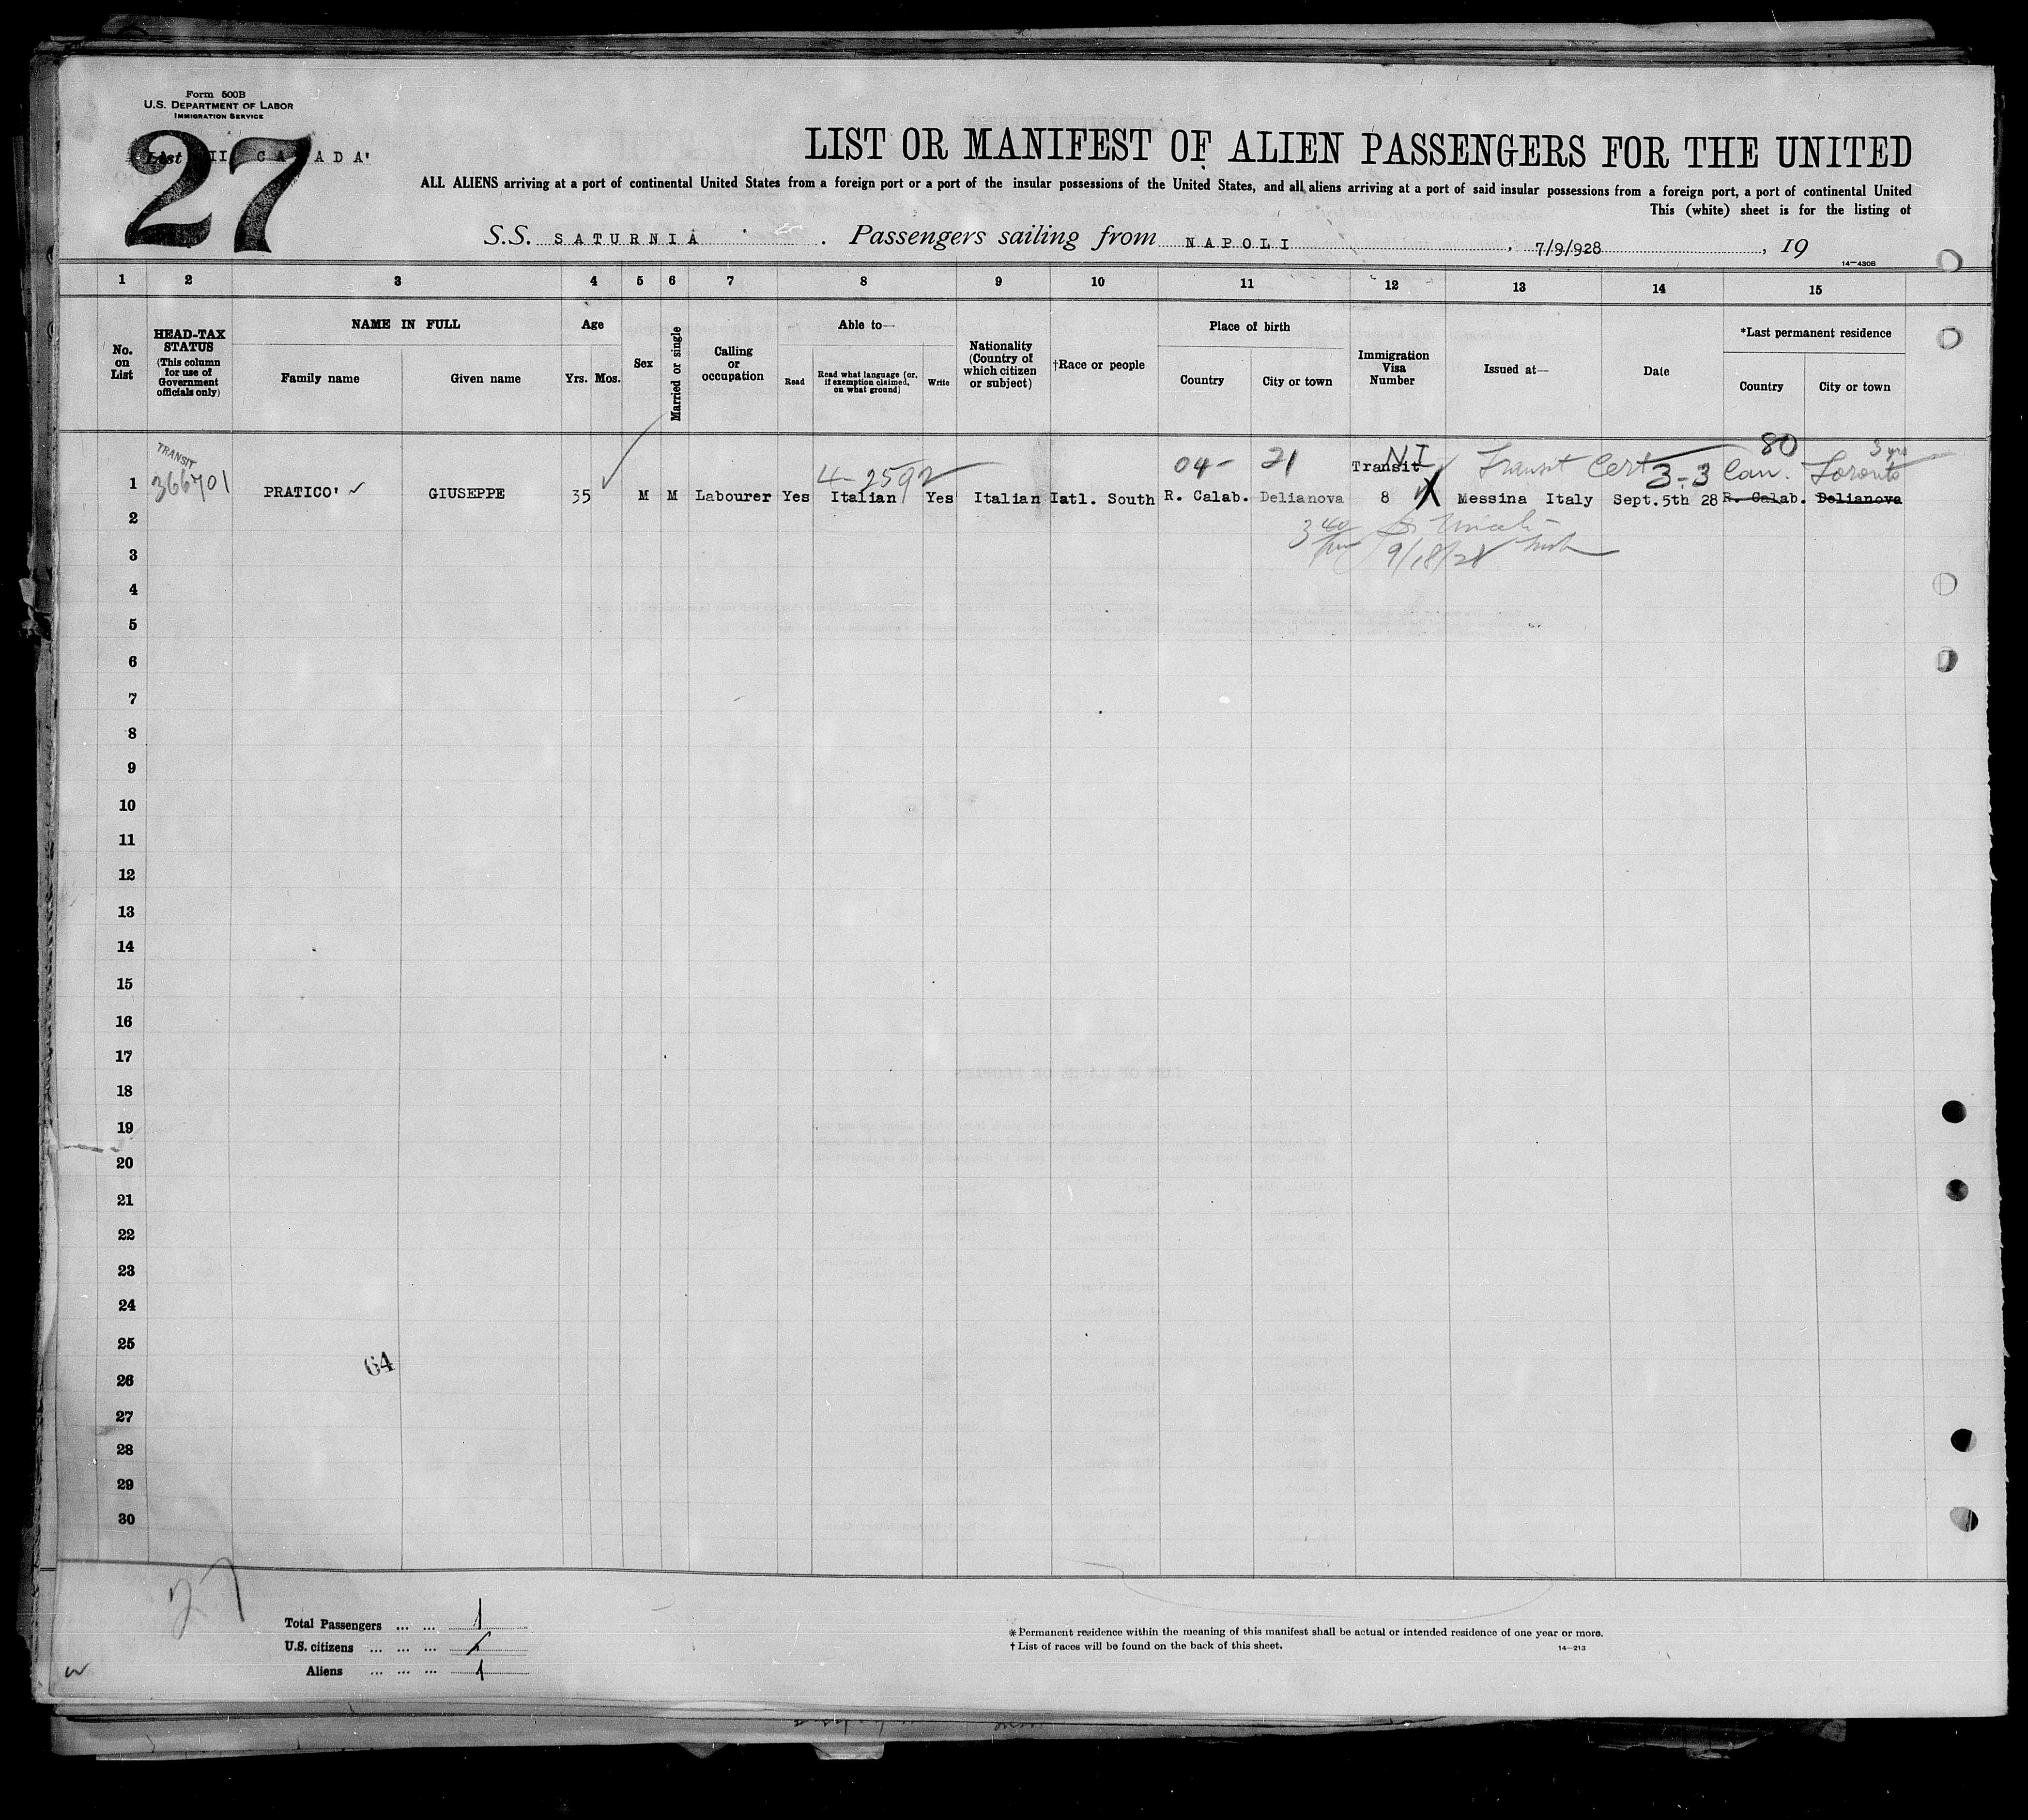 Form 500B
U.S. DEPARTMENT OF LABOR
IMMIGRATION SERVICE
27
List II CANADA'
LIST OR MANIFEST OF ALIEN PASSENGERS FOR THE UNITED
ALL ALIENS arriving at a port of continental United States from a foreign port or a port of the insular possessions of the United States, and all aliens arriving at a port of said insular possessions from a foreign port, a port of continental United
This (white) sheet is for the listing of
S.S. SATURNIA . Passengers sailing from NAPOLI , 7/9/928 , 19
14—430B
1 2 3 4 5 6 7 8 9 10 11 12 13 14 15
No. on List
HEAD-TAX STATUS
(This column for use of Government officials only)
NAME IN FULL
Family name
Given name
Age
Yrs. Mos.
Sex
Married or single
Calling or occupation
Able to—
Read
Read what language [or, if exemption claimed, on what ground]
Write
Nationality (Country of which citizen or subject)
†Race or people
Place of birth
Country
City or town
Immigration Visa Number
Issued at—
Date
*Last permanent residence
Country
City or town
TRANSIT
366701
4-2592
04- 21
NI
Transit
Transit Cert
3-3
80
Can.
3 yrs
Toronto
1 PRATICO' GIUSEPPE 35 M M Labourer Yes Italian Yes Italian Iatl. South R. Calab. Delianova 8 X Messina Italy Sept.5th 28 R. Calab. Delianova
2
3 9/18/28
4
5
6
7
8
9
10
11
12
13
14
15
16
17
18
19
20
21
22
23
24
25
64
26
27
28
29
30
27
Total Passengers ... ... 1
U.S. citizens ... ... ...
Aliens ... ... ... 1
* Permanent residence within the meaning of this manifest shall be actual or intended residence of one year or more.
† List of races will be found on the back of this sheet.
14—213